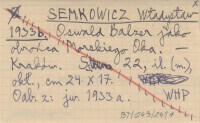 SEMKOWICZ Władysław
1933b. Oswald Balzer jako
obrońca Morskiego Oka. —
Kraków. S. 22, il. (m),
okł., cm 24 X 17.
Odb. z: jw. 1933a. WHP